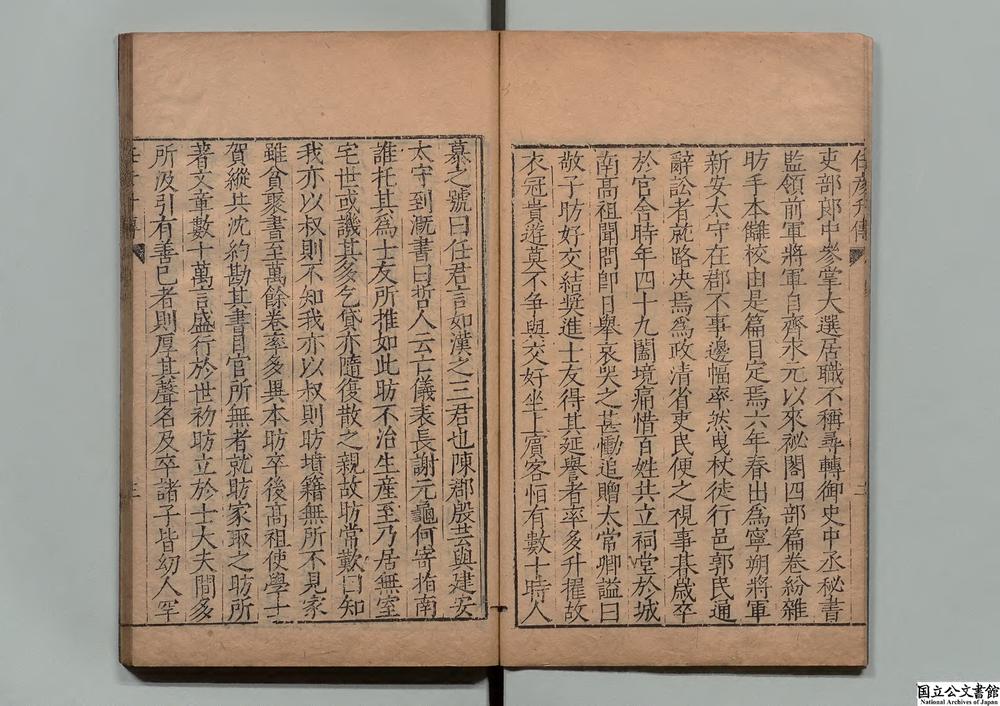 任彥升傳
吏部郎中參掌大選居職不稱尋轉御史中丞秘書
監領前軍將軍自齊永元以來秘閣四部篇卷紛雜
昉手本讎校由是篇目定焉六年春出為寧朔將軍
新安太守在郡不事邊幅率然曳杖徒行邑郭民通
辭訟者就路決焉為政清省吏民便之視事朞歲卒
於官舍時年四十九闔境痛惜百姓共立祠堂於城
南高祖聞問即日舉哀哭之甚慟追贈太常卿謚曰
敬子昉好交結奬進士友得其延譽者率多升擢故
衣冠貴遊莫不爭與交好坐上賓客恒有數十時人
慕之號曰任君言如漢之三君也陳郡殷芸與建安
太守到溉書曰哲人云亡儀表長謝元龜何寄指南
誰托其為士友所推如此昉不治生產至乃居無室
宅世或譏其多乞貸亦隨復散之親故昉常歎曰知
我亦以叔則不知我亦以叔則昉墳籍無所不見家
雖貧聚書至萬餘卷率多異本昉卒後高祖使學士
賀縱共沈約勘其書目官所無者就昉家取之昉所
著文章數十萬言盛行於世初昉立於士大夫間多
所汲引有善己者則厚其聲名及卒諸子皆幼人罕
三
國立公文書館
National Archives of Japan